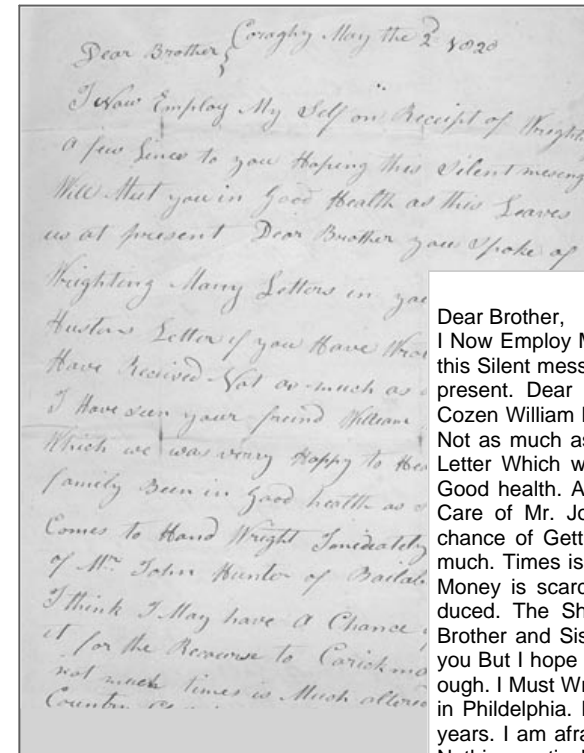 Coraghy May the 2 1820
Dear Brother
I Now Employ My Self on Receipt of Wright
a few Lines to you Hoping this Silent meseng
Will Meet you in Good Health as this Leaves
us at present Dear Brother you Spoke of
Wrighting Many Letters in you
Hustons Letter if you Have Wro
Have Received Not as much as
I Have seen your freind William
Which we was verry Happy to He
family Been in Good health as
Comes to Hand Wright Imidiately
of Mr. John Hunter of Bailab
I think I May have A Chance
it for the Recourse to Carickma
not much times is Much altered
Country
Dear Brother,
I Now Employ M
this Silent mess
present. Dear
Cozen William
Not as much as
Letter Which w
Good health. A
Care of Mr. Jo
chance of Gett
much. Times is
Money is scarc
duced. The Sh
Brother and Sis
you But I hope
ough. I Must Wr
in Phildelphia.
years. I am afra